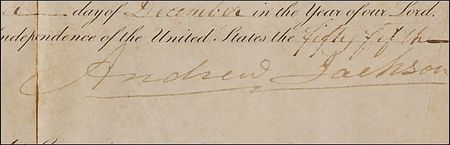 day of December in the Year of our Lord.
Independence of the United States the fifty fifth
Andrew Jackson